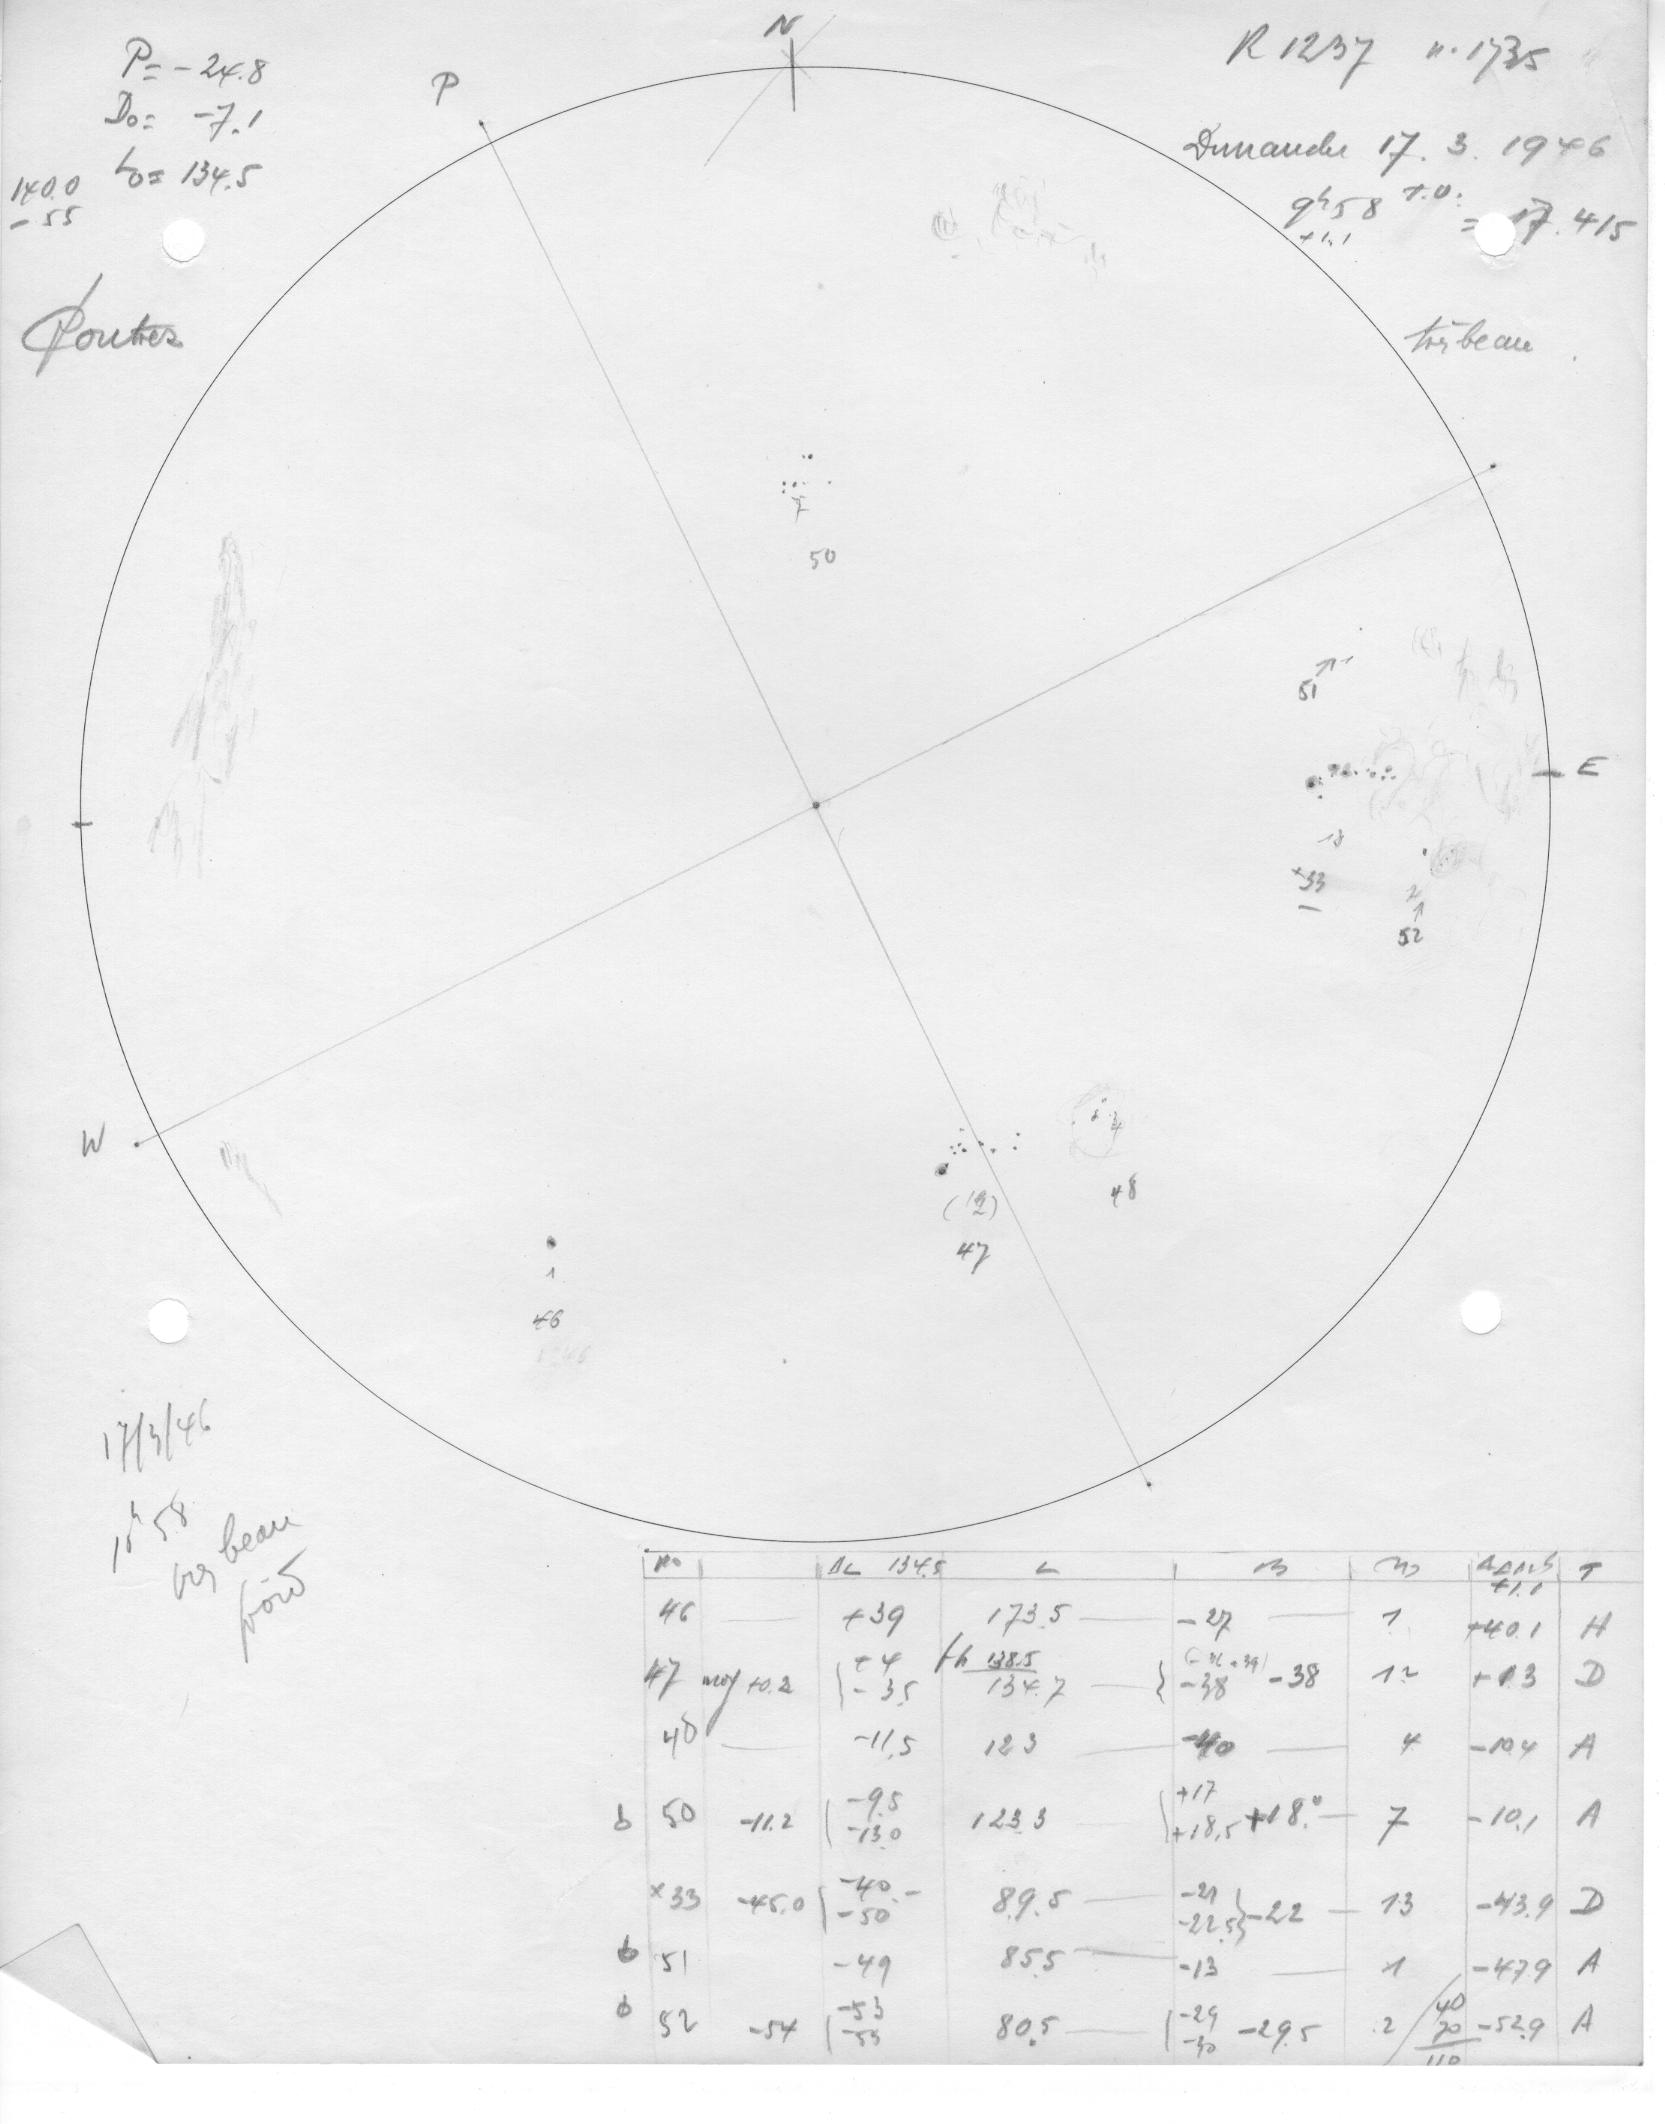 N
P = -24.8
D0 = -7.1
L0 = 134.5
140.0
-55
P
R 1237 n. 1735
Dimanche 17. 3. 1946
9h58 T.U. = 17.415
+1.1
très beau
7
50
51
1
E
18
×33
2
52
4
48
(12)
47
W
1
46
17/3/46
10h 58
très beau
froid
No ΔL 134.5 L
+1.1 T
46 +39 173.5 -27 1 +40.1 H
47 moy +0.2 +4 138.5
-3.5 134.7 -38 -38 12 +1.3 D
48 -11.5 123 -40 4 -10.4 A
50 -11.2 -9.5 123.3 +17
-13.0 +18.5 +18.0 7 -10.1 A
×33 -45.0 -40 89.5 -21
-50 -22.5 -22 13 -43.9 D
51 -49 85.5 -13 1 -47.9 A
52 -54 -53 80.5 -29
-55 -30 -29.5 2 -52.9 A
40
70
110